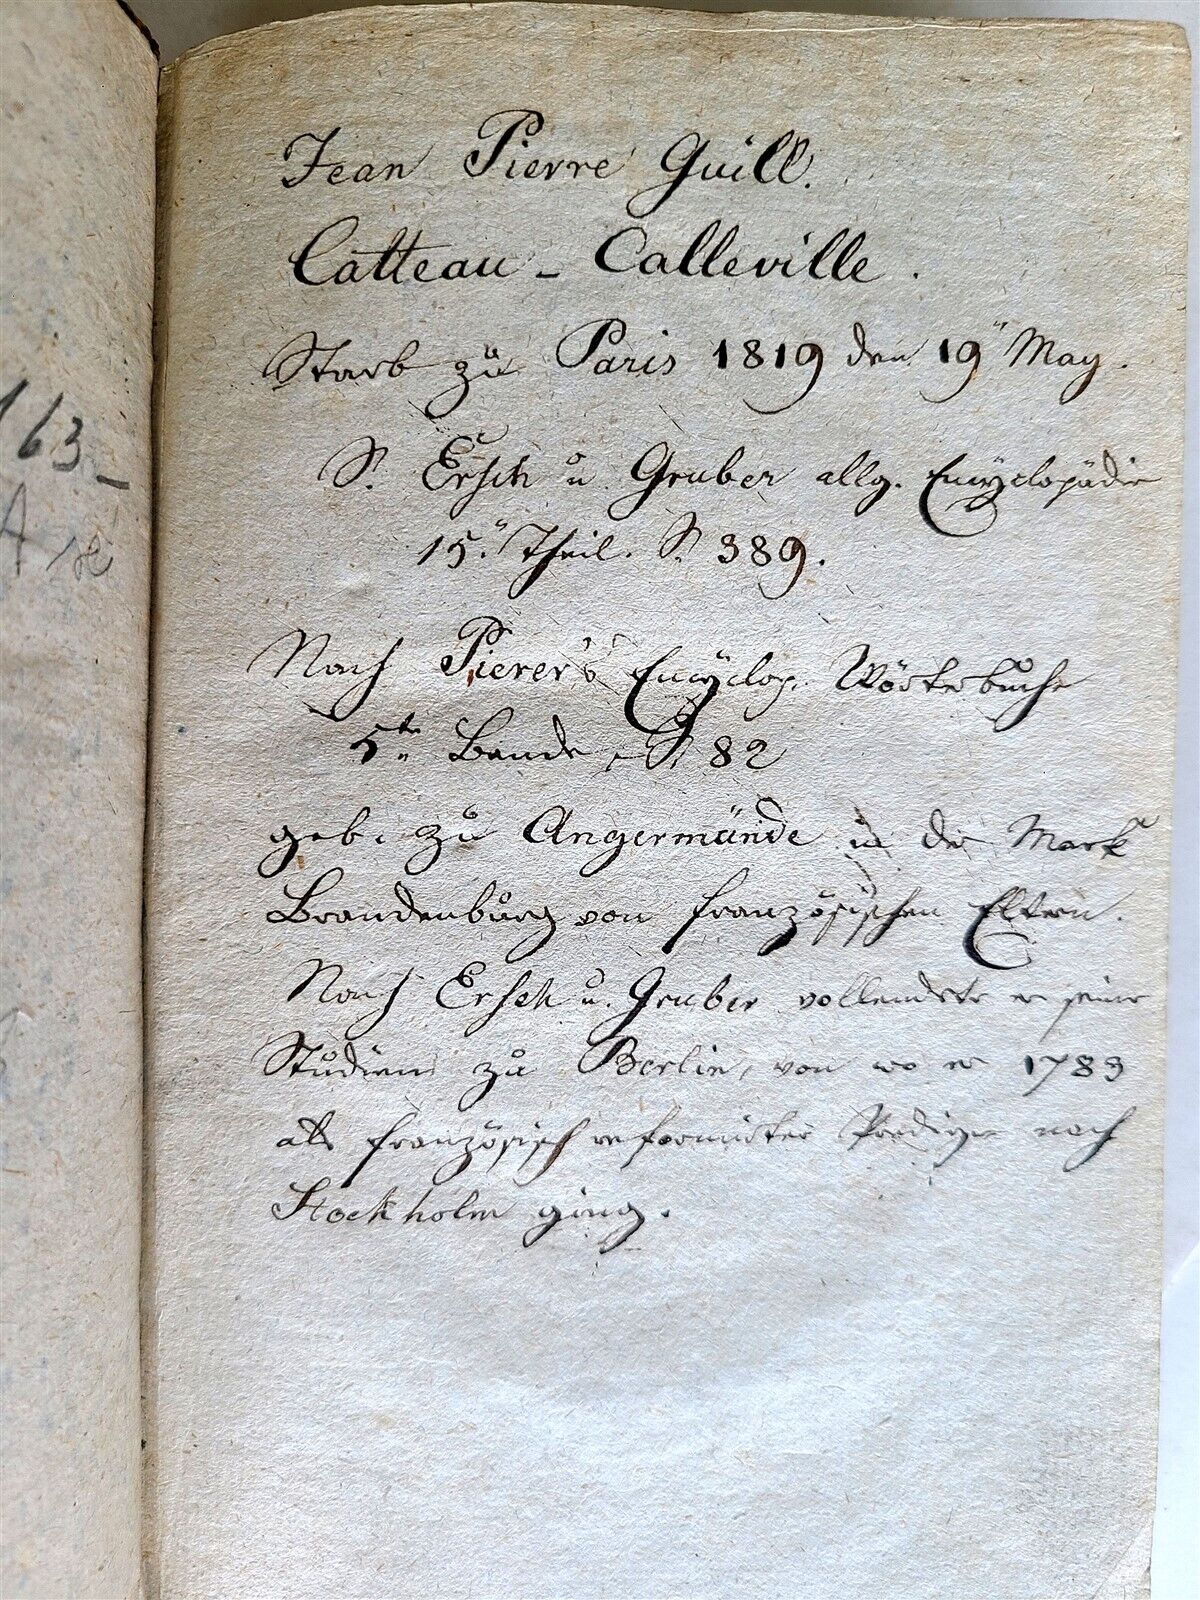 163 –
A
Jean Pierre Guill.
Catteau – Calleville.
Starb zu Paris 1819 den 19" May.
S. Ersch u Gruber allg. Encyclopädie
15." Theil. S. 389.
Nach Pierer's Encyclop. Wörterbuche
5te Bande, S. 82
geb. zu Angermünde in der Mark
Brandenburg von französischen Eltern.
Nach Ersch u. Gruber vollendete er seine
Studien zu Berlin, von wo er 1783
als französisch reformirter Prediger nach
Stockholm ging.